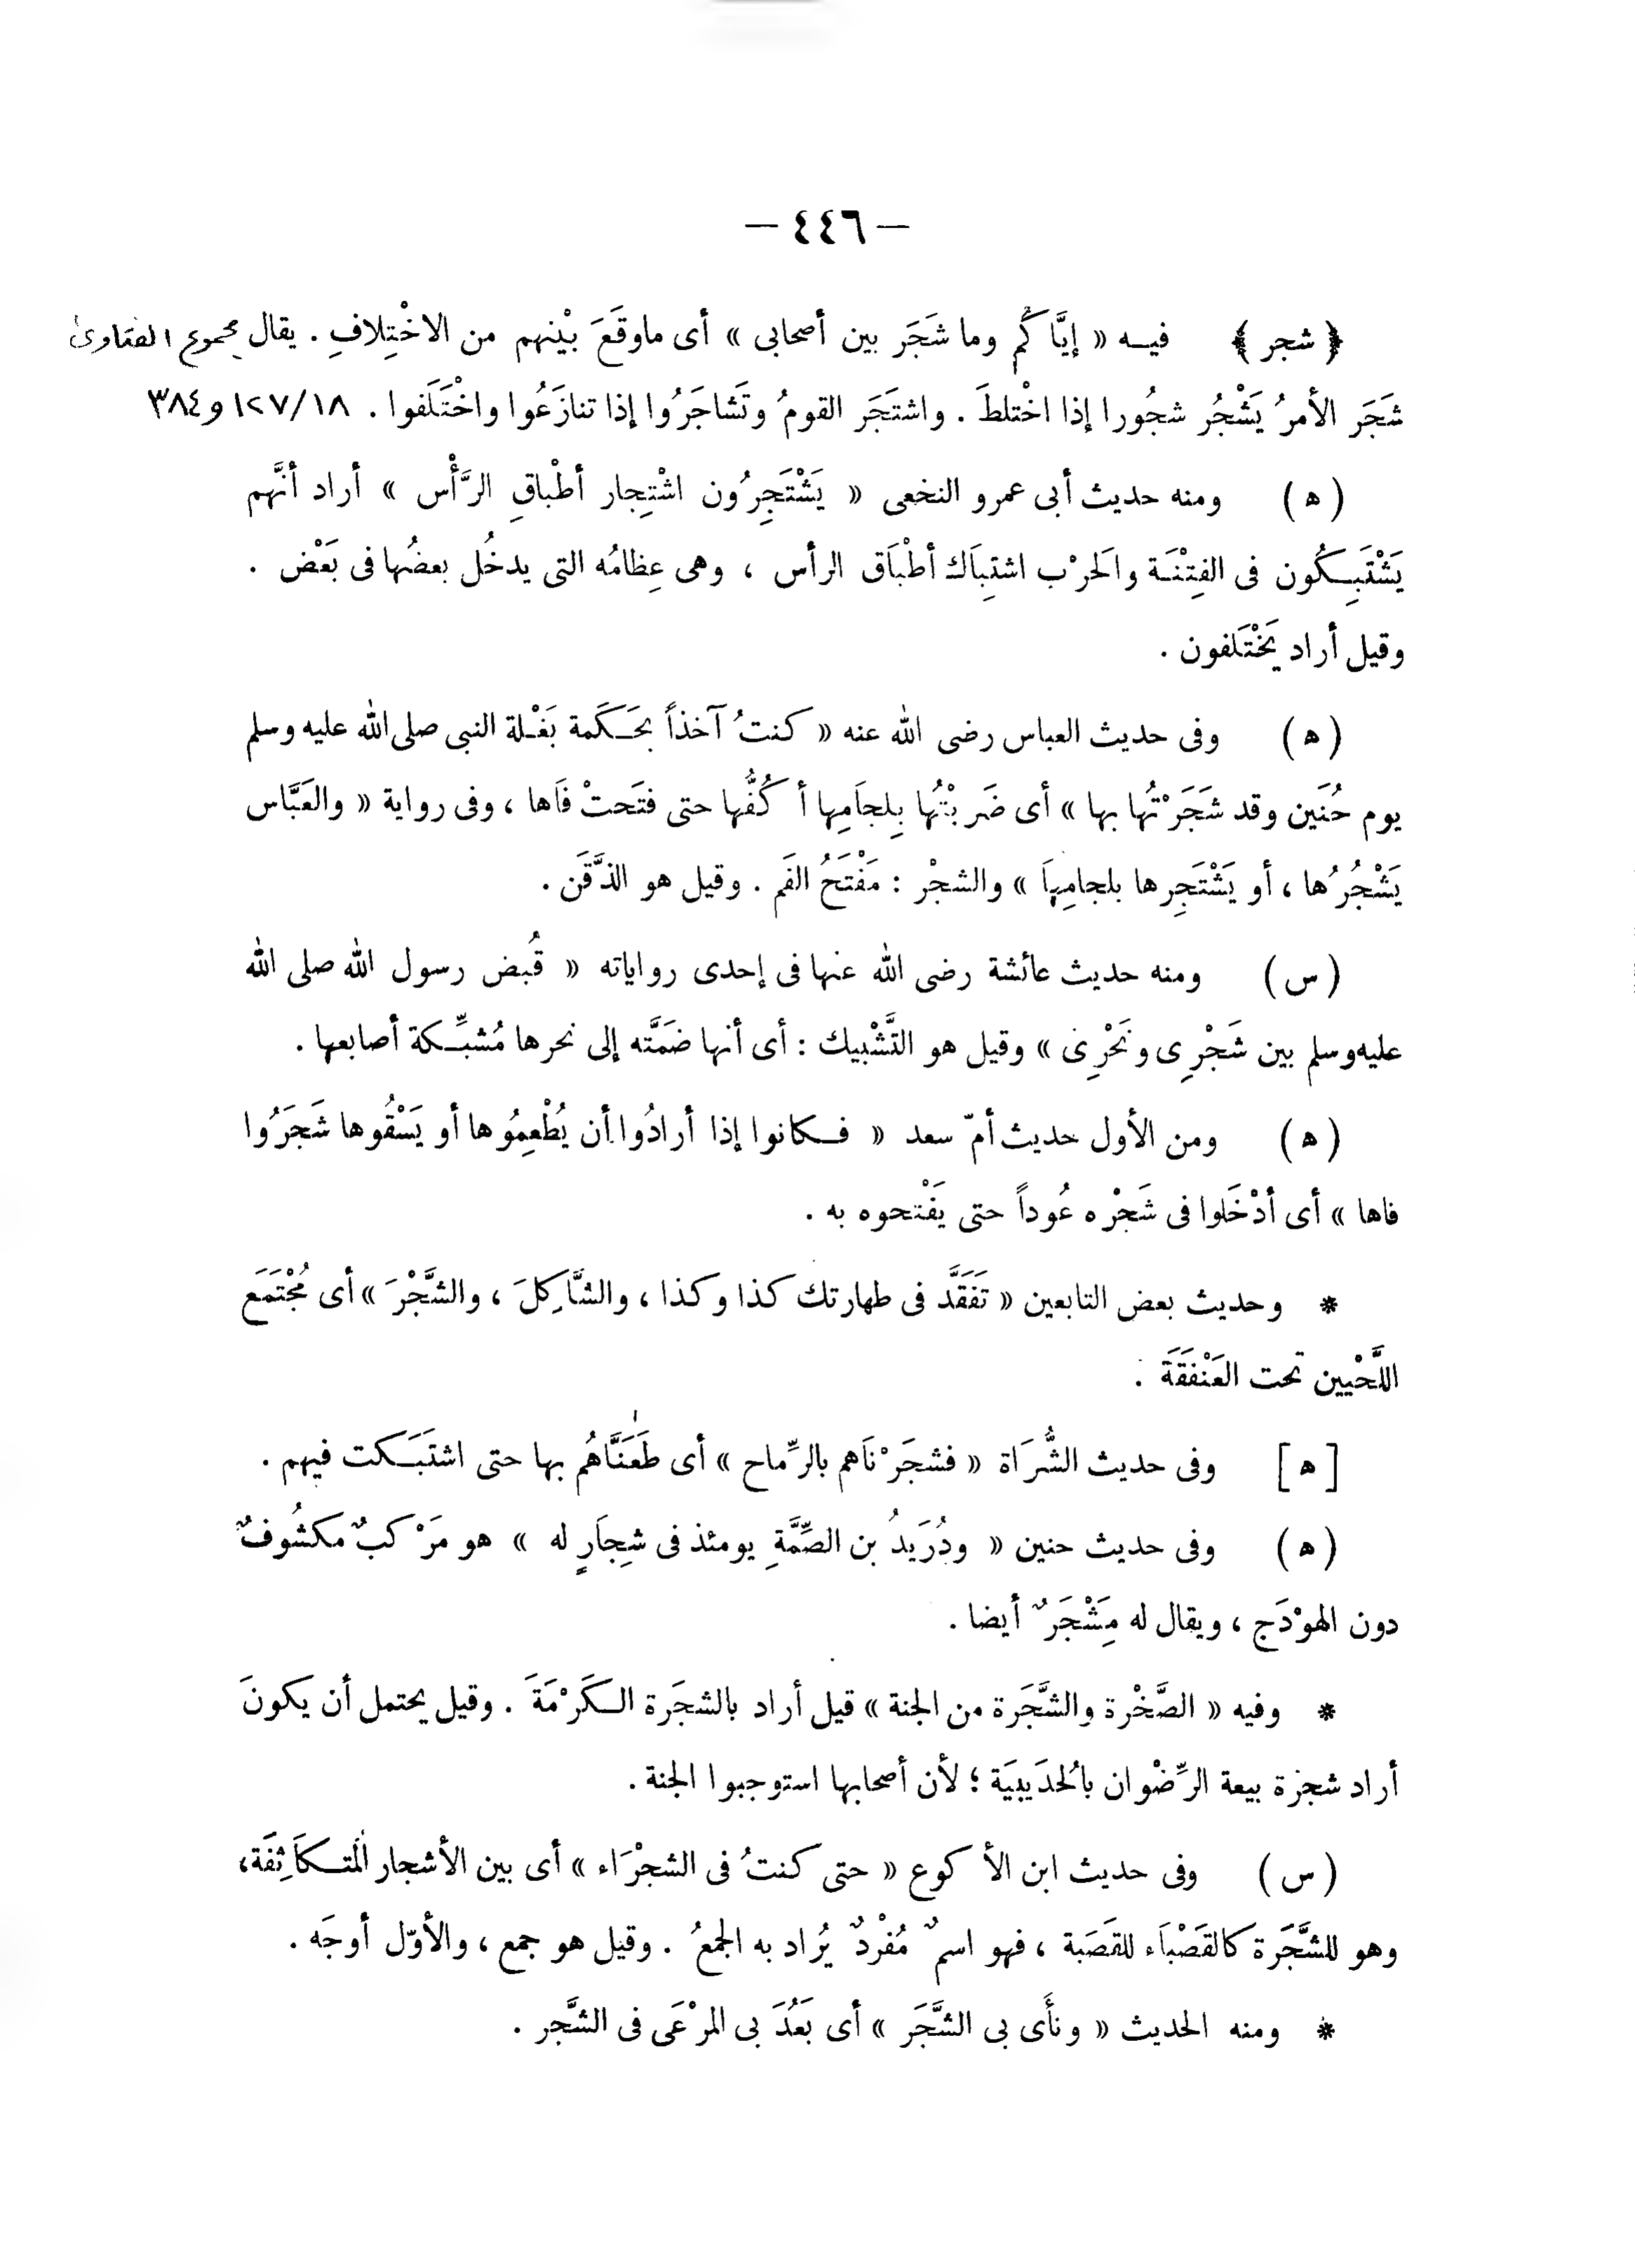 — ٤٤٦ —
﴿ شجر ﴾ فيـه « إيَّاكُم وما شَجَر بين أصحابى » أى ماوقَعَ بيْنهم من الاخْتِلافِ . يقال مجموع الفتاوى
شَجَر الأمرُ يَشْجُر شجُورا إذا اخْتلطَ . واشتَجَر القومُ وتَشاجَرُوا إذا تنازَعُوا واخْتَلَفوا . ١٢٧/١٨ و٣٨٤
( ه ) ومنه حديث أبى عمرو النخعى « يَشْتَجِرُون اشْتِجار أطْباقِ الرَّأْس » أراد أنَّهم
يَشْتَبِـكُون فى الفِتْنَـة والَحرْب اشتِبَاك أطْبَاق الرأس ، وهى عِظامُه التى يدخُل بعضُها فى بَعْض .
وقيل أراد يَخْتَلفون .
( ه ) وفى حديث العباس رضى الله عنه « كنتُ آخذاً بحَـكَمة بَغْـلة النبى صلى الله عليه وسلم
يوم حُنَين وقد شَجَرْتُها بها » أى ضَربْتُها بِلجاَمِها أكُفُّها حتى فتَحتْ فَاها ، وفى رواية « والعَبَّاس
يَشْجُرُها ، أو يَشْتَجِرها بلجامِهاَ » والشجْر : مَفْتَحُ الفَم . وقيل هو الذَّقَن .
( س ) ومنه حديث عائشة رضى الله عنها فى إحدى رواياته « قُبض رسول الله صلى الله
عليه وسلم بين شَجْرِى ونَحْرِى » وقيل هو التَّشْبيك : أى أنها ضَمَّته إلى نحرها مُشبِّـكة أصابعها .
( ه ) ومن الأول حديث أمّ سعد « فـكانوا إذا أرادُوا أن يُطْعِمُوها أو يَسْقُوها شَجَرُوا
فاها » أى أدْخَلوا فى شَجْره عُوداً حتى يَفْتحوه به .
* وحديث بعض التابعين « تَفَقَّد فى طهارتك كذا وكذا ، والشَّاكِلَ ، والشَّجْرَ » أى مُجْتَمَع
اللَّحْيين تحت العَنْفَقَة .
[ ه ] وفى حديث الشُّرَاة « فشجَرْنَاهم بالرِّماح » أى طَعَنَّاهُم بها حتى اشتَبَـكت فيهم .
( ه ) وفى حديث حنين « ودُرَيدُ بن الصِّمَّةِ يومئذ فى شِجَارٍ له » هو مَرْكبٌ مكشُوفٌ
دون الهوْدَج ، ويقال له مِشْجَرٌ أيضا .
* وفيه « الصَّخْرة والشَّجَرة من الجنة » قيل أراد بالشجَرة الـكَرْمَةَ . وقيل يحتمل أن يكونَ
أراد شجرة بيعة الرِّضْوان بالُحدَيبيَة ؛ لأن أصحابها استوجبوا الجنة .
( س ) وفى حديث ابن الأكوع « حتى كنتُ فى الشجْرَاء » أى بين الأشجار المُتـكَاَثِفَة ،
وهو للشَّجَرة كالقَصْبَاَء للقَصَبة ، فهو اسمٌ مُفْردٌ يُراد به الجمعُ . وقيل هو جمع ، والأوّل أوجَه .
* ومنه الحديث « ونأَى بى الشَّجَر » أى بَعُدَ بى المرْعَى فى الشَّجر .